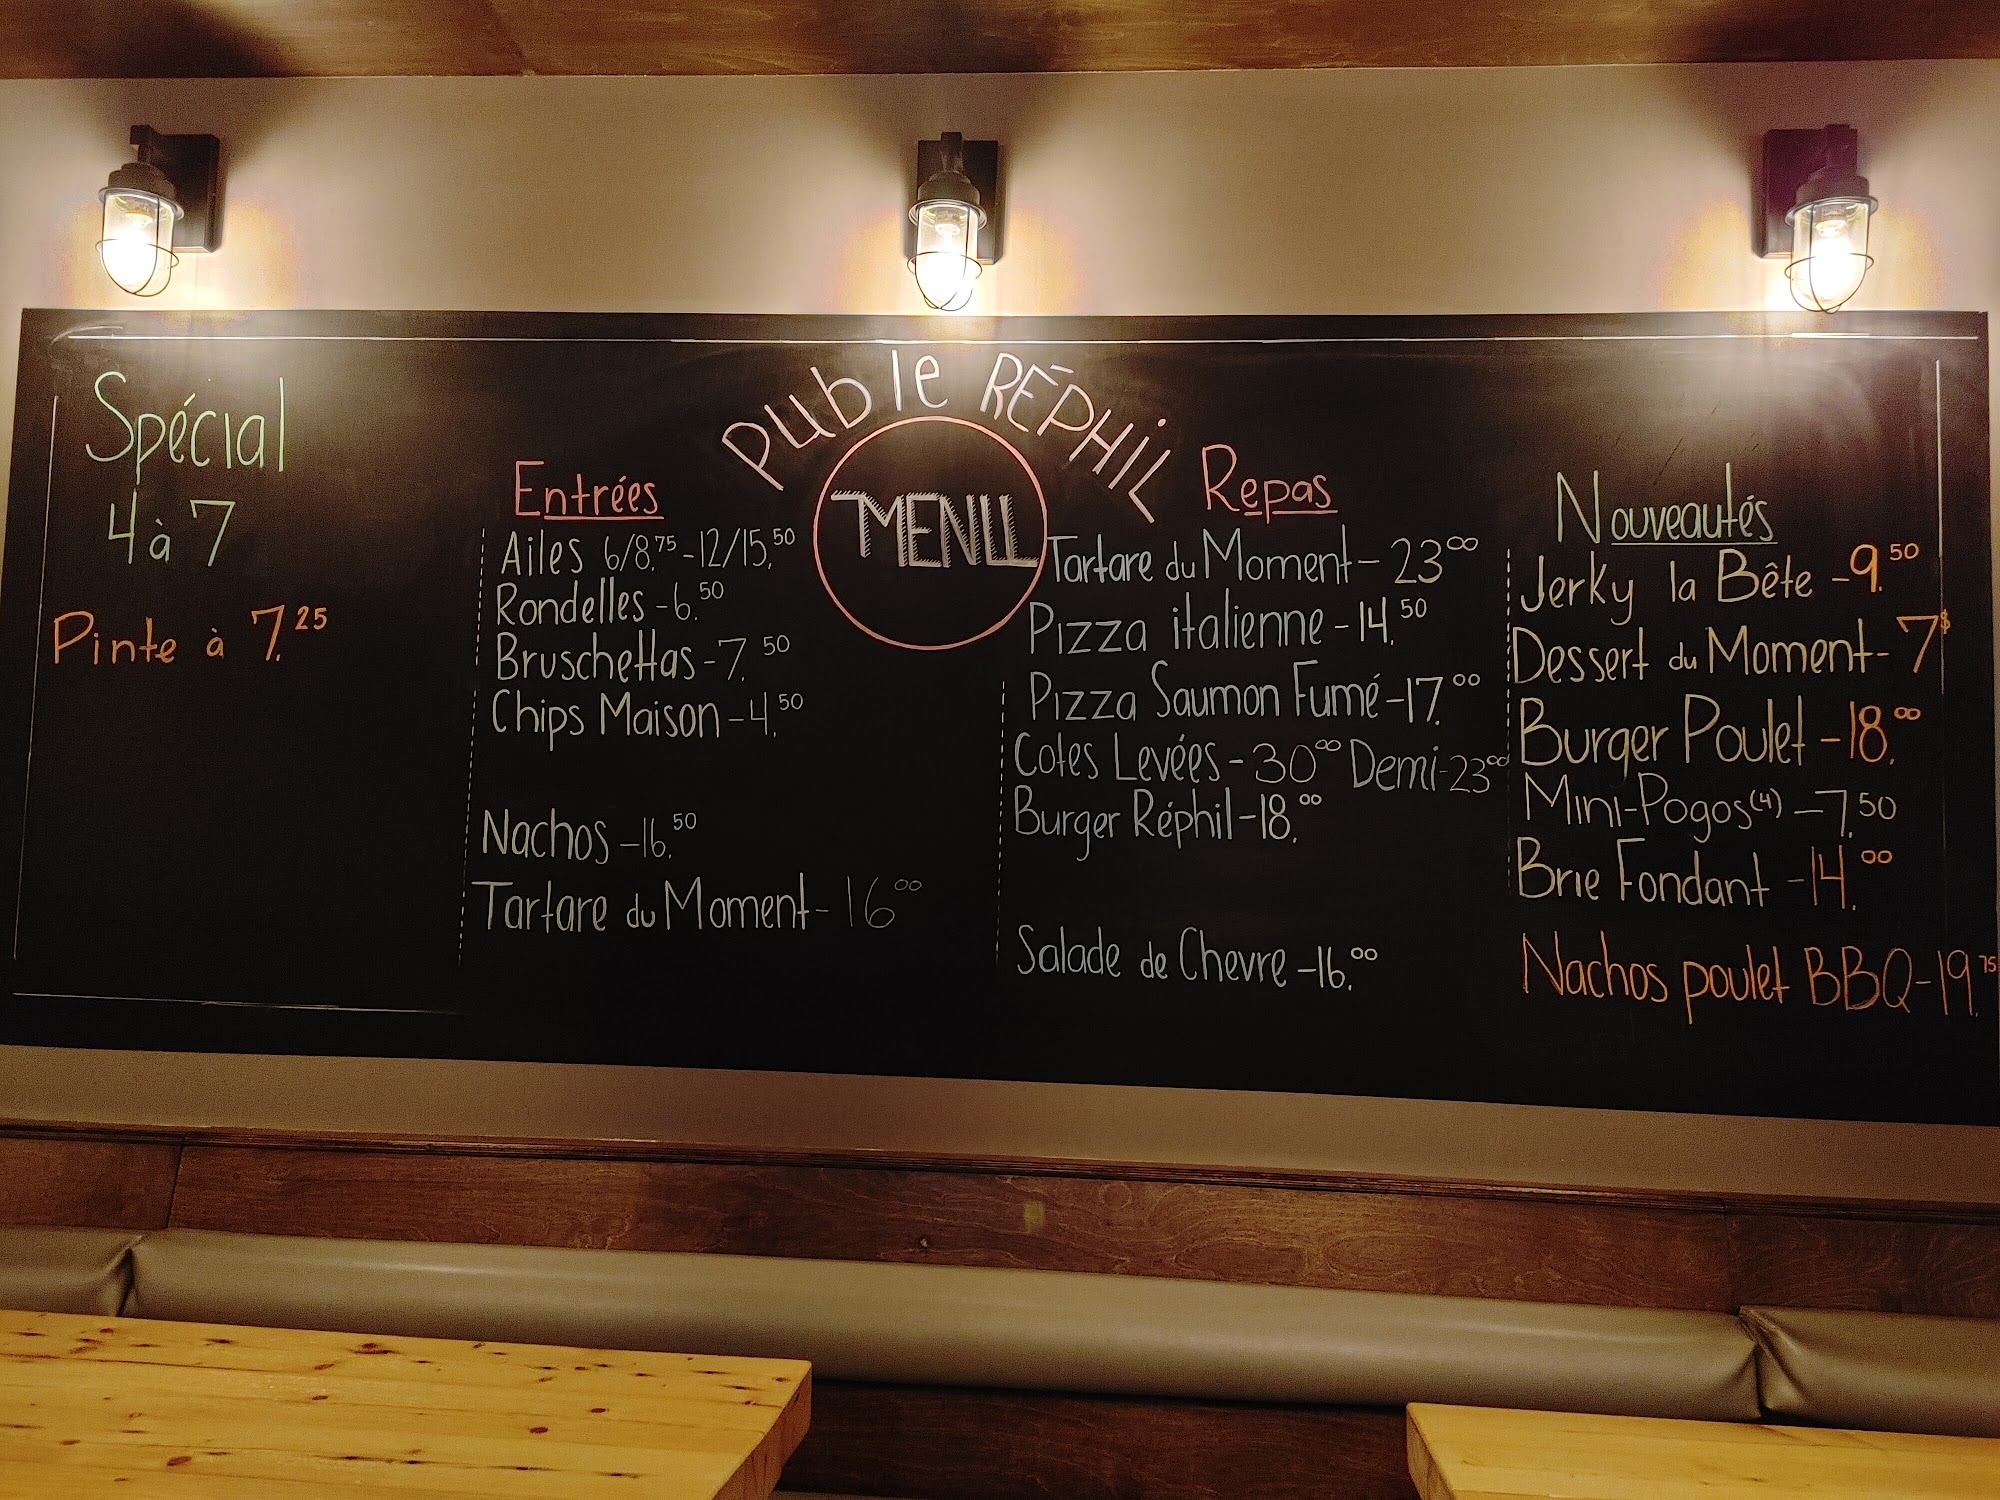 Pub le RÉPHIL
MENU
Spécial
4 à 7
Pinte à 7.25
Entrées
Ailes 6/8.75 - 12/15.50
Rondelles - 6.50
Bruschettas - 7.50
Chips Maison - 4.50
Nachos - 16.50
Tartare du Moment - 16 00
Repas
Tartare du Moment - 23 00
Pizza italienne - 14.50
Pizza Saumon Fumé - 17.00
Cotes Levées - 30 00 Demi - 23 00
Burger Réphil - 18.00
Salade de Chevre - 16.00
Nouveautés
Jerky la Bête - 9.50
Dessert du Moment - 7$
Burger Poulet - 18.00
Mini-Pogos (4) - 7.50
Brie Fondant - 14.00
Nachos poulet BBQ - 19.75